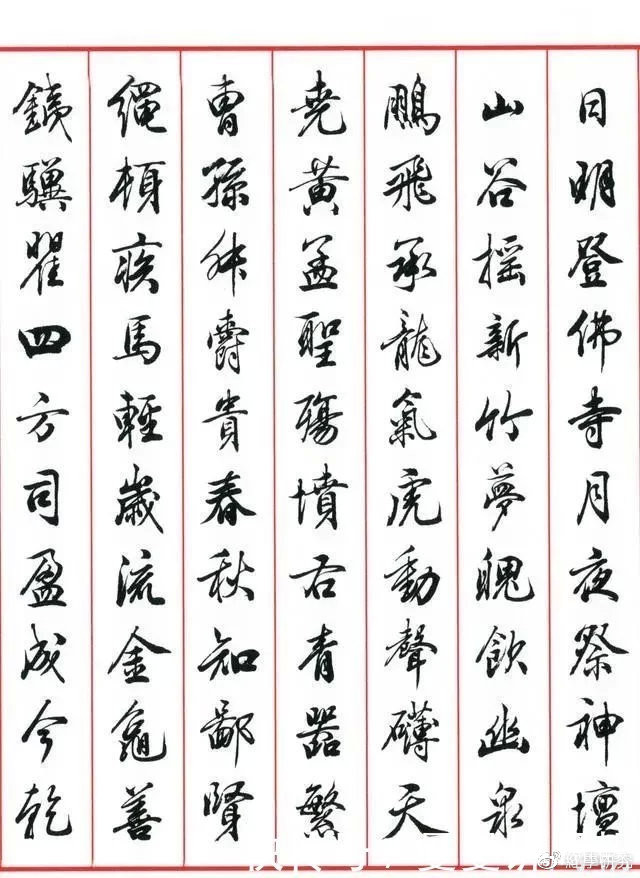 日明登佛寺月夜祭神壇
山谷摇新竹夢魄飲幽泉
鵬飛承龍氣虎動聲礴天
堯黃孟聖殤墳右青器繁
曹孫爵貴春秋知鄙賢
繩頓疾馬輕歲流金龜善
鐵驥瞿四方司盈成今乾